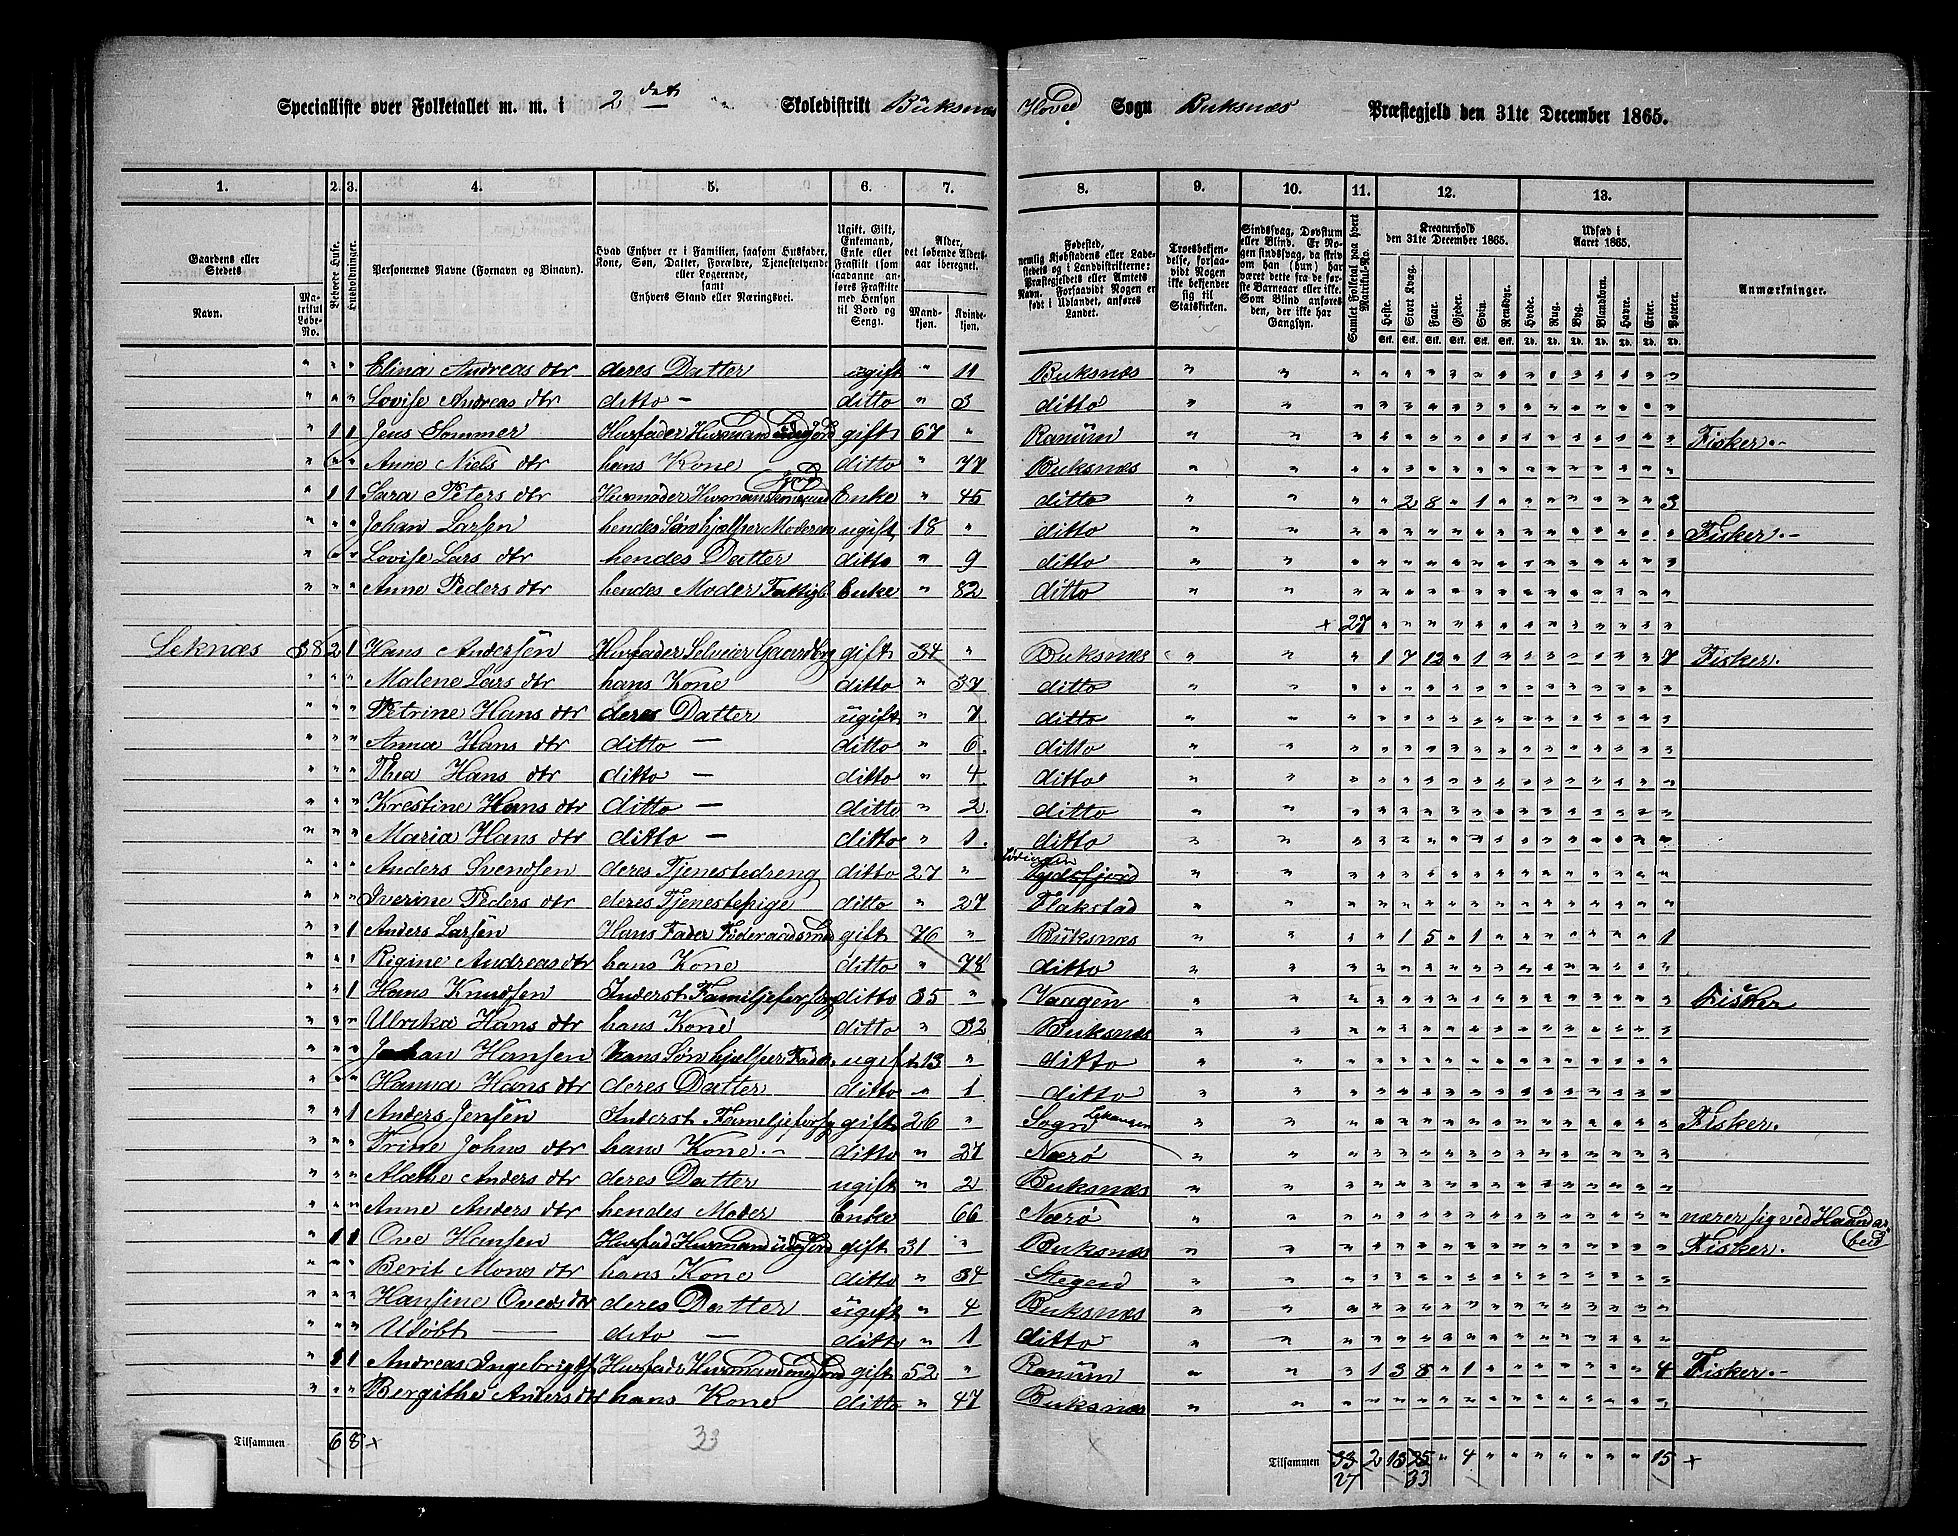 Specialliste over Folketallet m. m. i 2det Skoledistrikt Buksnæs Hoved Sogn Buksnæs Præstegjeld den 31te December 1865.
1. 2. 3. 4. 5. 6. 7. 8. 9. 10. 11. 12. 13.
Gaardens eller Stedets Navn. Matrikul Løbe-No. Beboede Huse. Husholdninger. Personernes Navne (Fornavn og Binavn). Hvad Enhver er i Familien, saasom Husfader, Kone, Søn, Datter, Forældre, Tjenestetyende eller Logerende, samt Enhvers Stand eller Næringsvei. Ugift, Gift, Enkemand, Enke eller Fraskilt (saadanne anføres Fraskilte med Hensyn til Bord og Seng). Alder, det løbende Alders-aar iberegnet. Mandkjøn. Kvindekjøn.
Fødested, nemlig Kjøbstadens eller Ladestedets og i Landdistrikterne: Præstegjeldets eller Amtets Navn. Forsaavidt Nogen er født i Udlandet, anføres Landet. Troesbekjendelse, forsaavidt Nogen ikke bekjender sig til Statskirken. Samlet Folketal paa hvert Matrikul-No. Kreaturhold den 31te December 1865. Heste. Stort Kvæg. Faar. Gjeder. Svin. Rensdyr. Udsæd i Aaret 1865. Hvede. Rug. Byg. Blandkorn. Havre. Erter. Poteter. Anmærkninger.
Elina Andreas dtr deres Datter ugift " 11 Buksnæs
Lovise Andreas dtr ditto - ditto " 3 ditto
1 1 Jens Sommer Husfader Husmand gift 67 " Ranum Fisker.-
Anne Niels dtr hans Kone ditto " 77 Buksnæs
1 1 Sara Peters dtr Husmoder Enke " 45 ditto 2 8 " 1 3
Johan Larsen hendes Søn hjælper Moderen ugift 18 " ditto Fisker.-
Lovise Lars dtr hendes Datter ditto " 9 ditto
Anne Peders dtr hendes Moder Fattigl. Enke " 82 ditto
+ 27
Leknæs 38 2 1 Hans Andersen Husfader Selveier Gaardbr gift 34 " Buksnæs 1 7 12 " 1 7 Fisker.
Malene Lars dtr hans Kone ditto " 37 ditto
Petrine Hans dtr deres Datter ugift " 7 ditto
Anna Hans dtr ditto - ditto " 6. ditto
Thea Hans dtr ditto - ditto " 4 ditto
Krestine Hans dtr ditto - ditto " 2. ditto
Maria Hans dtr ditto - ditto " 1. ditto
Anders Svendsen deres Tjenestedreng ditto 27 "
Iverine Peders dtr deres Tjenestepige ditto " 27 Flakstad
1 Anders Larsen Hans Fader Føderaadsmd gift 76 " Buksnæs 1 5 " 1 1
Regine Andreas dtr hans Kone ditto " 78 ditto
1 Hans Knudsen Inderst Familjeforsørg ditto 35 " Vaagen Fisker
Ulrika Hans dtr hans Kone ditto " 32 Buksnæs
Johan Hansen hans Søn hjælper Fader ugift 13 " ditto
Hanna Hans dtr deres Datter ditto " 1 ditto
1 Anders Jensen Inderst Familjeforsg gift 26 " Sogn Fisker.
Trine Johns dtr hans Kone.- ditto " 27 Nærø
Alethe Anders dtr deres Datter ugift " 2 Buksnæs
Anne Anders dtr hendes Moder Enke 66 Nærø nærer sig ved Haandarbeid
1 1 Ove Hansen Husfad Husmand gift 31 " Buksnæs Fisker.
Berit Mons dtr hans Kone ditto " 34 Stegen
Hansine Oves dtr deres Datter ugift " 4 Buksnæs
Udøbt - dito - ditto " 1 ditto
1 1 Andreas Ingebrigts. Husfad. Husmand gift 52 " Ranum 1 3 8 " 1 4 Fisker.-
Bergithe Anders dtr hans Kone ditto " 47 Buksnæs
Tilsammen 6 8 + 33 Tilsammen 33 2 13 25 " 4 15 +
27 33